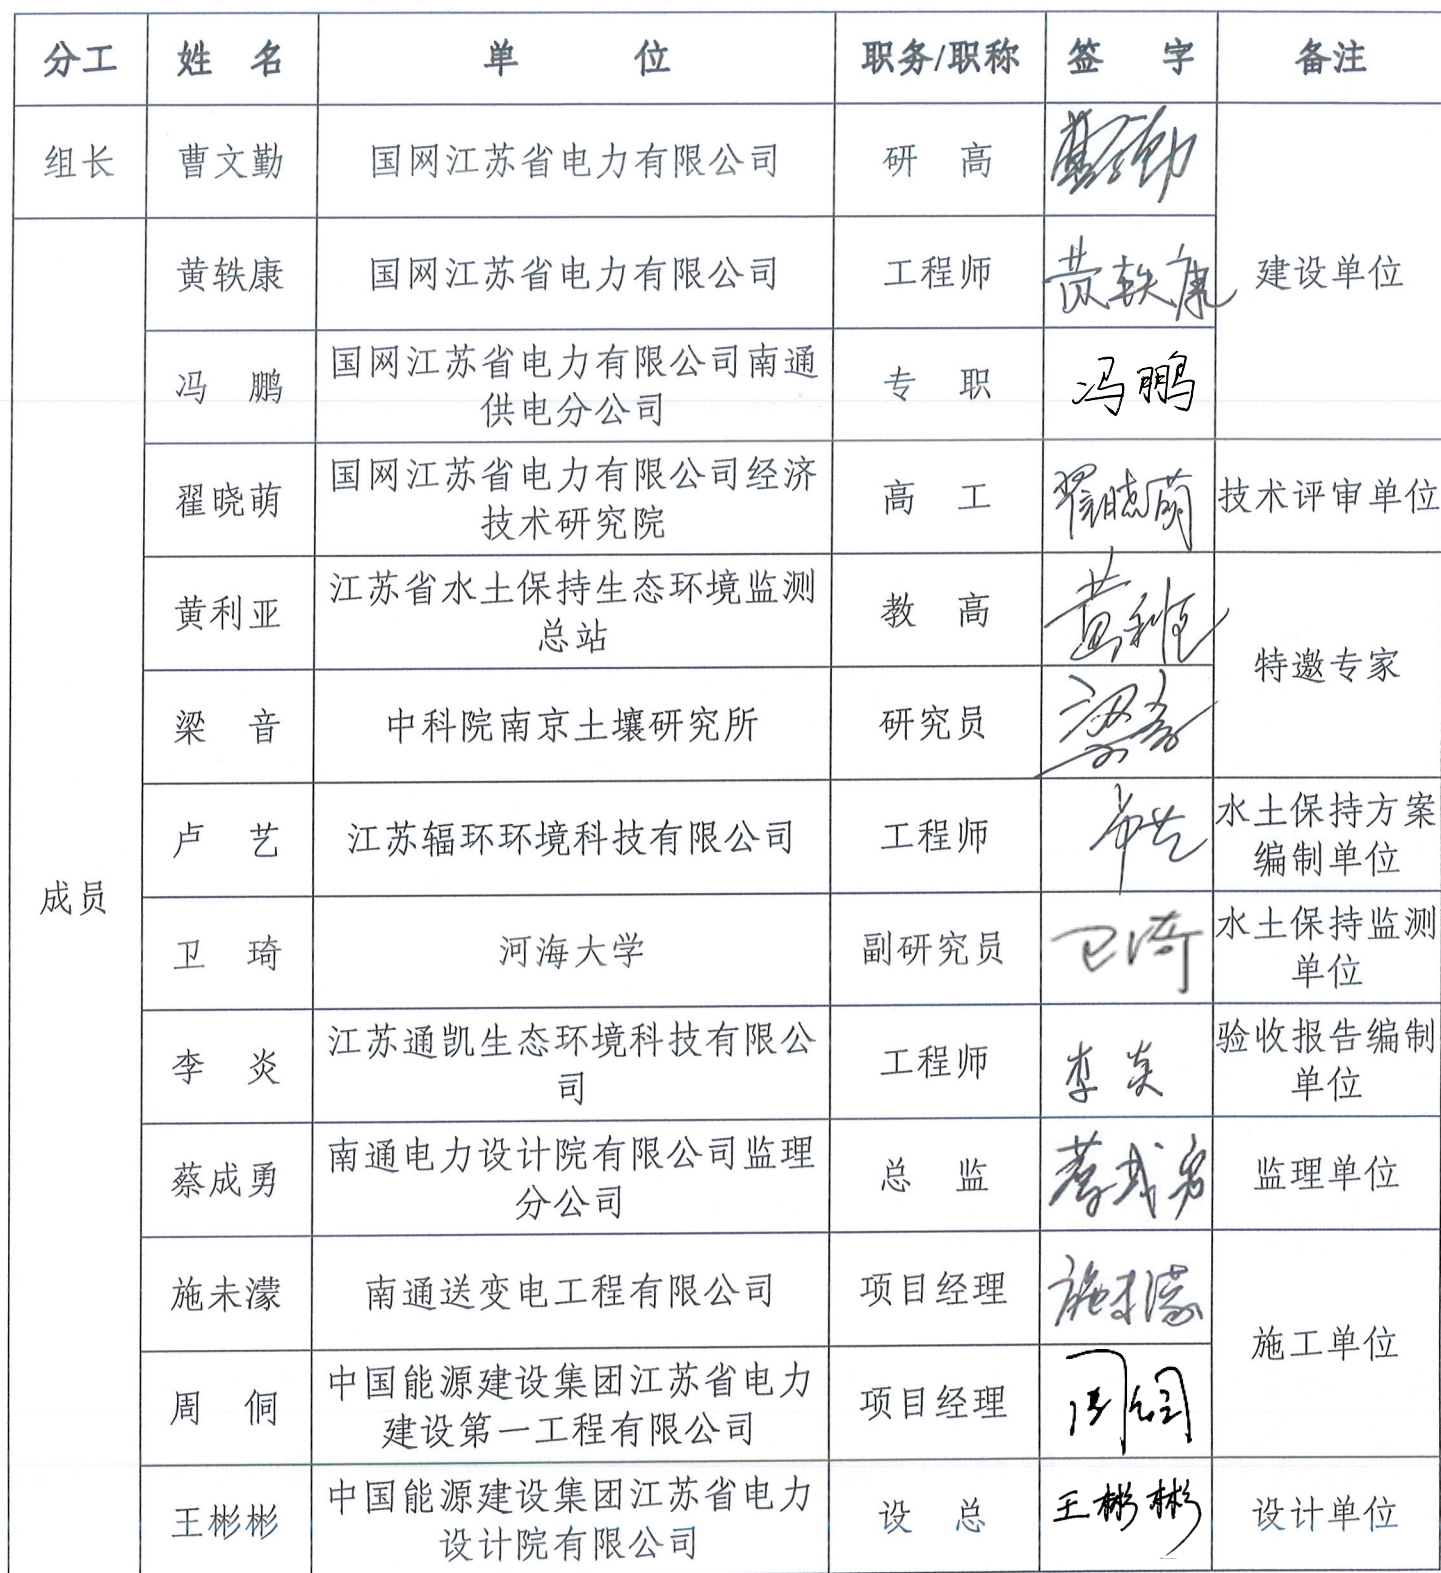 分工 姓 名 单 位 职务/职称 签 字 备注
组长 曹文勤 国网江苏省电力有限公司 研 高 曹文勤
黄轶康 国网江苏省电力有限公司 工程师 黄轶康 建设单位
冯 鹏 国网江苏省电力有限公司南通
供电分公司 专 职 冯鹏
翟晓萌 国网江苏省电力有限公司经济
技术研究院 高 工 翟晓萌 技术评审单位
黄利亚 江苏省水土保持生态环境监测
总站 教 高 黄利亚
特邀专家
梁 音 中科院南京土壤研究所 研究员 梁音
卢 艺 江苏辐环环境科技有限公司 工程师 水土保持方案
编制单位
成员
卫 琦 河海大学 副研究员 卫琦 水土保持监测
单位
李 炎 江苏通凯生态环境科技有限公
司 工程师 李炎 验收报告编制
单位
蔡成勇 南通电力设计院有限公司监理
分公司 总 监 蔡成勇 监理单位
施未濛 南通送变电工程有限公司 项目经理 施未濛
施工单位
周 侗 中国能源建设集团江苏省电力
建设第一工程有限公司 项目经理
王彬彬 中国能源建设集团江苏省电力
设计院有限公司 设 总 王彬彬 设计单位